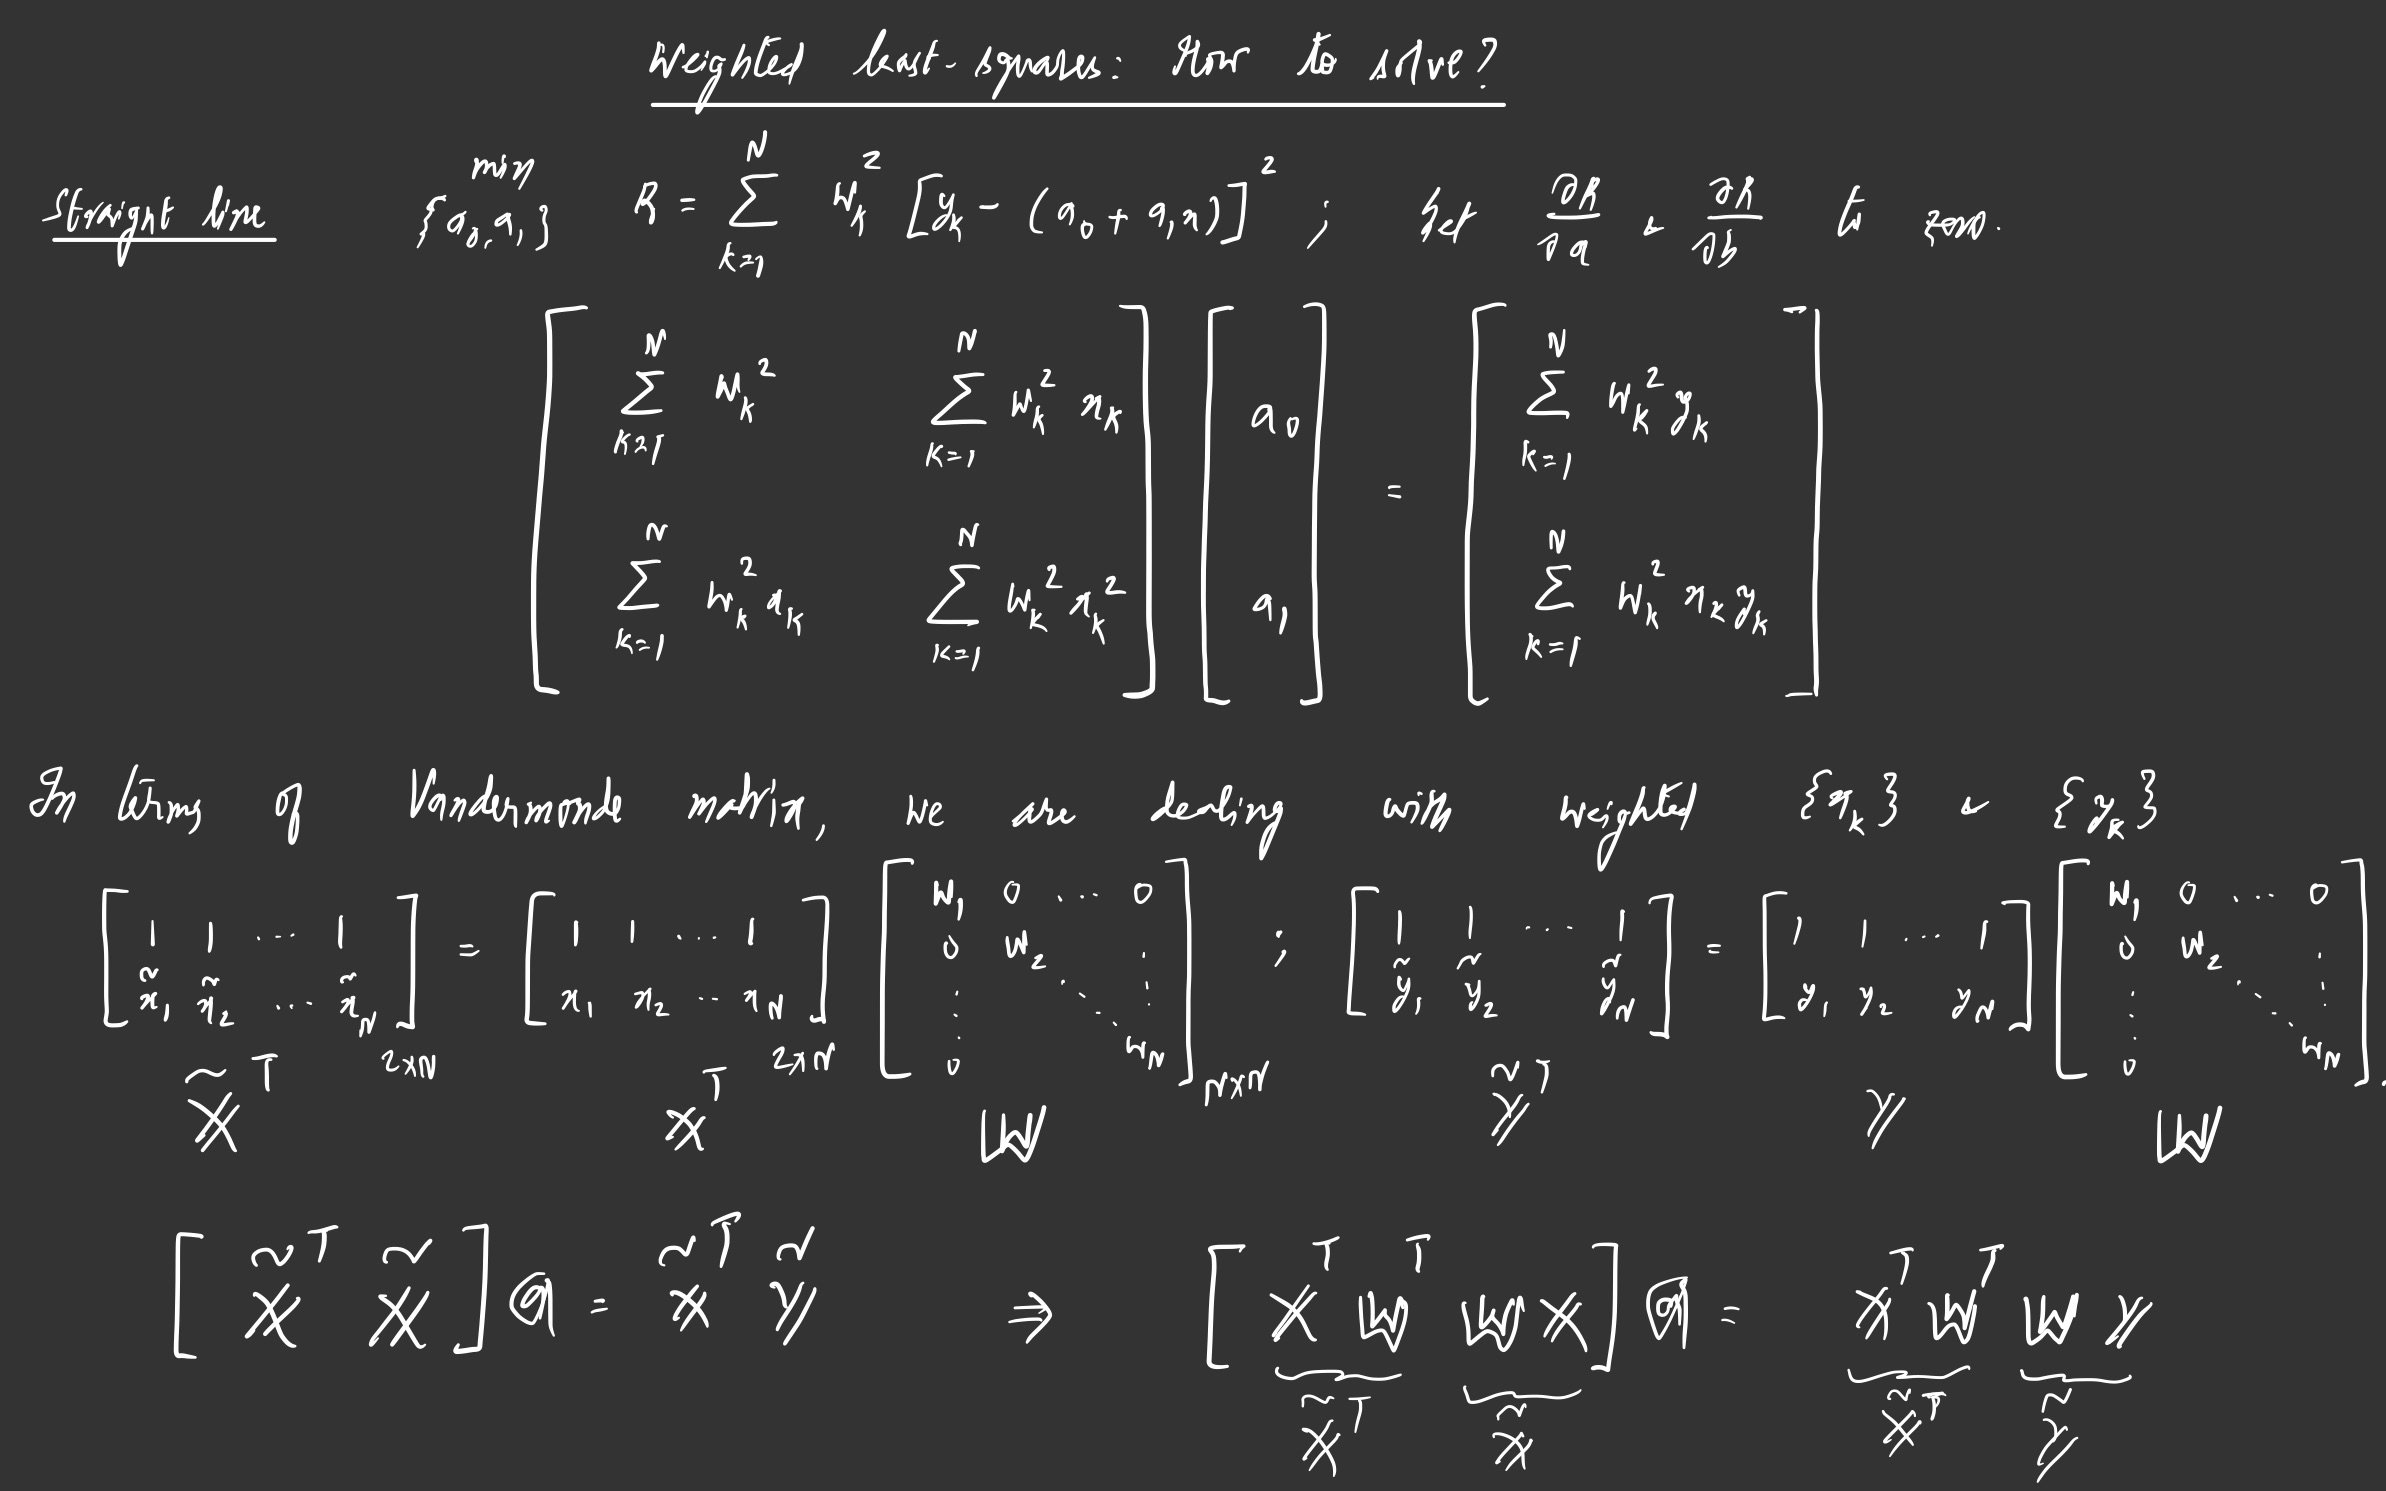 Weighted least-squares: How to solve?
Straight line min {a₀, a₁} R = Σ_{k=1}^{N} w_k² [y_k − (a₀ + a₁x)]² ; set ∂R/∂a & ∂R/∂b to zero.
[ Σ_{k=1}^{N} w_k²   Σ_{k=1}^{N} w_k² x_k ] [ a₀ ] = [ Σ_{k=1}^{N} w_k² y_k ]
[ Σ_{k=1}^{N} w_k² x_k   Σ_{k=1}^{N} w_k² x_k² ] [ a₁ ] [ Σ_{k=1}^{N} w_k² x_k y_k ]
In terms of Vandermonde matrix, we are dealing with weighted {x_k} & {y_k}
[ 1 1 ... 1 ; x̃₁ x̃₂ ... x̃_N ]_{2×N} = [ 1 1 ... 1 ; x₁ x₂ ... x_N ]_{2×N} [ w₁ 0 ... 0 ; 0 w₂ ⋱ ⋮ ; 0 w_N ]_{N×N} ; [ 1 1 ... 1 ; ỹ₁ ỹ₂ ỹ_N ] = [ 1 1 ... 1 ; y₁ y₂ y_N ] [ w₁ 0 ... 0 ; 0 w₂ ⋱ ⋮ ; 0 w_N ]
X̃ᵀ Xᵀ W Ỹᵀ Y W
[ X̃ᵀ X̃ ] a = X̃ᵀ Ỹ ⇒ [ Xᵀ Wᵀ W X ] a = Xᵀ Wᵀ W Y
X̃ᵀ X̃ X̃ᵀ Ỹ